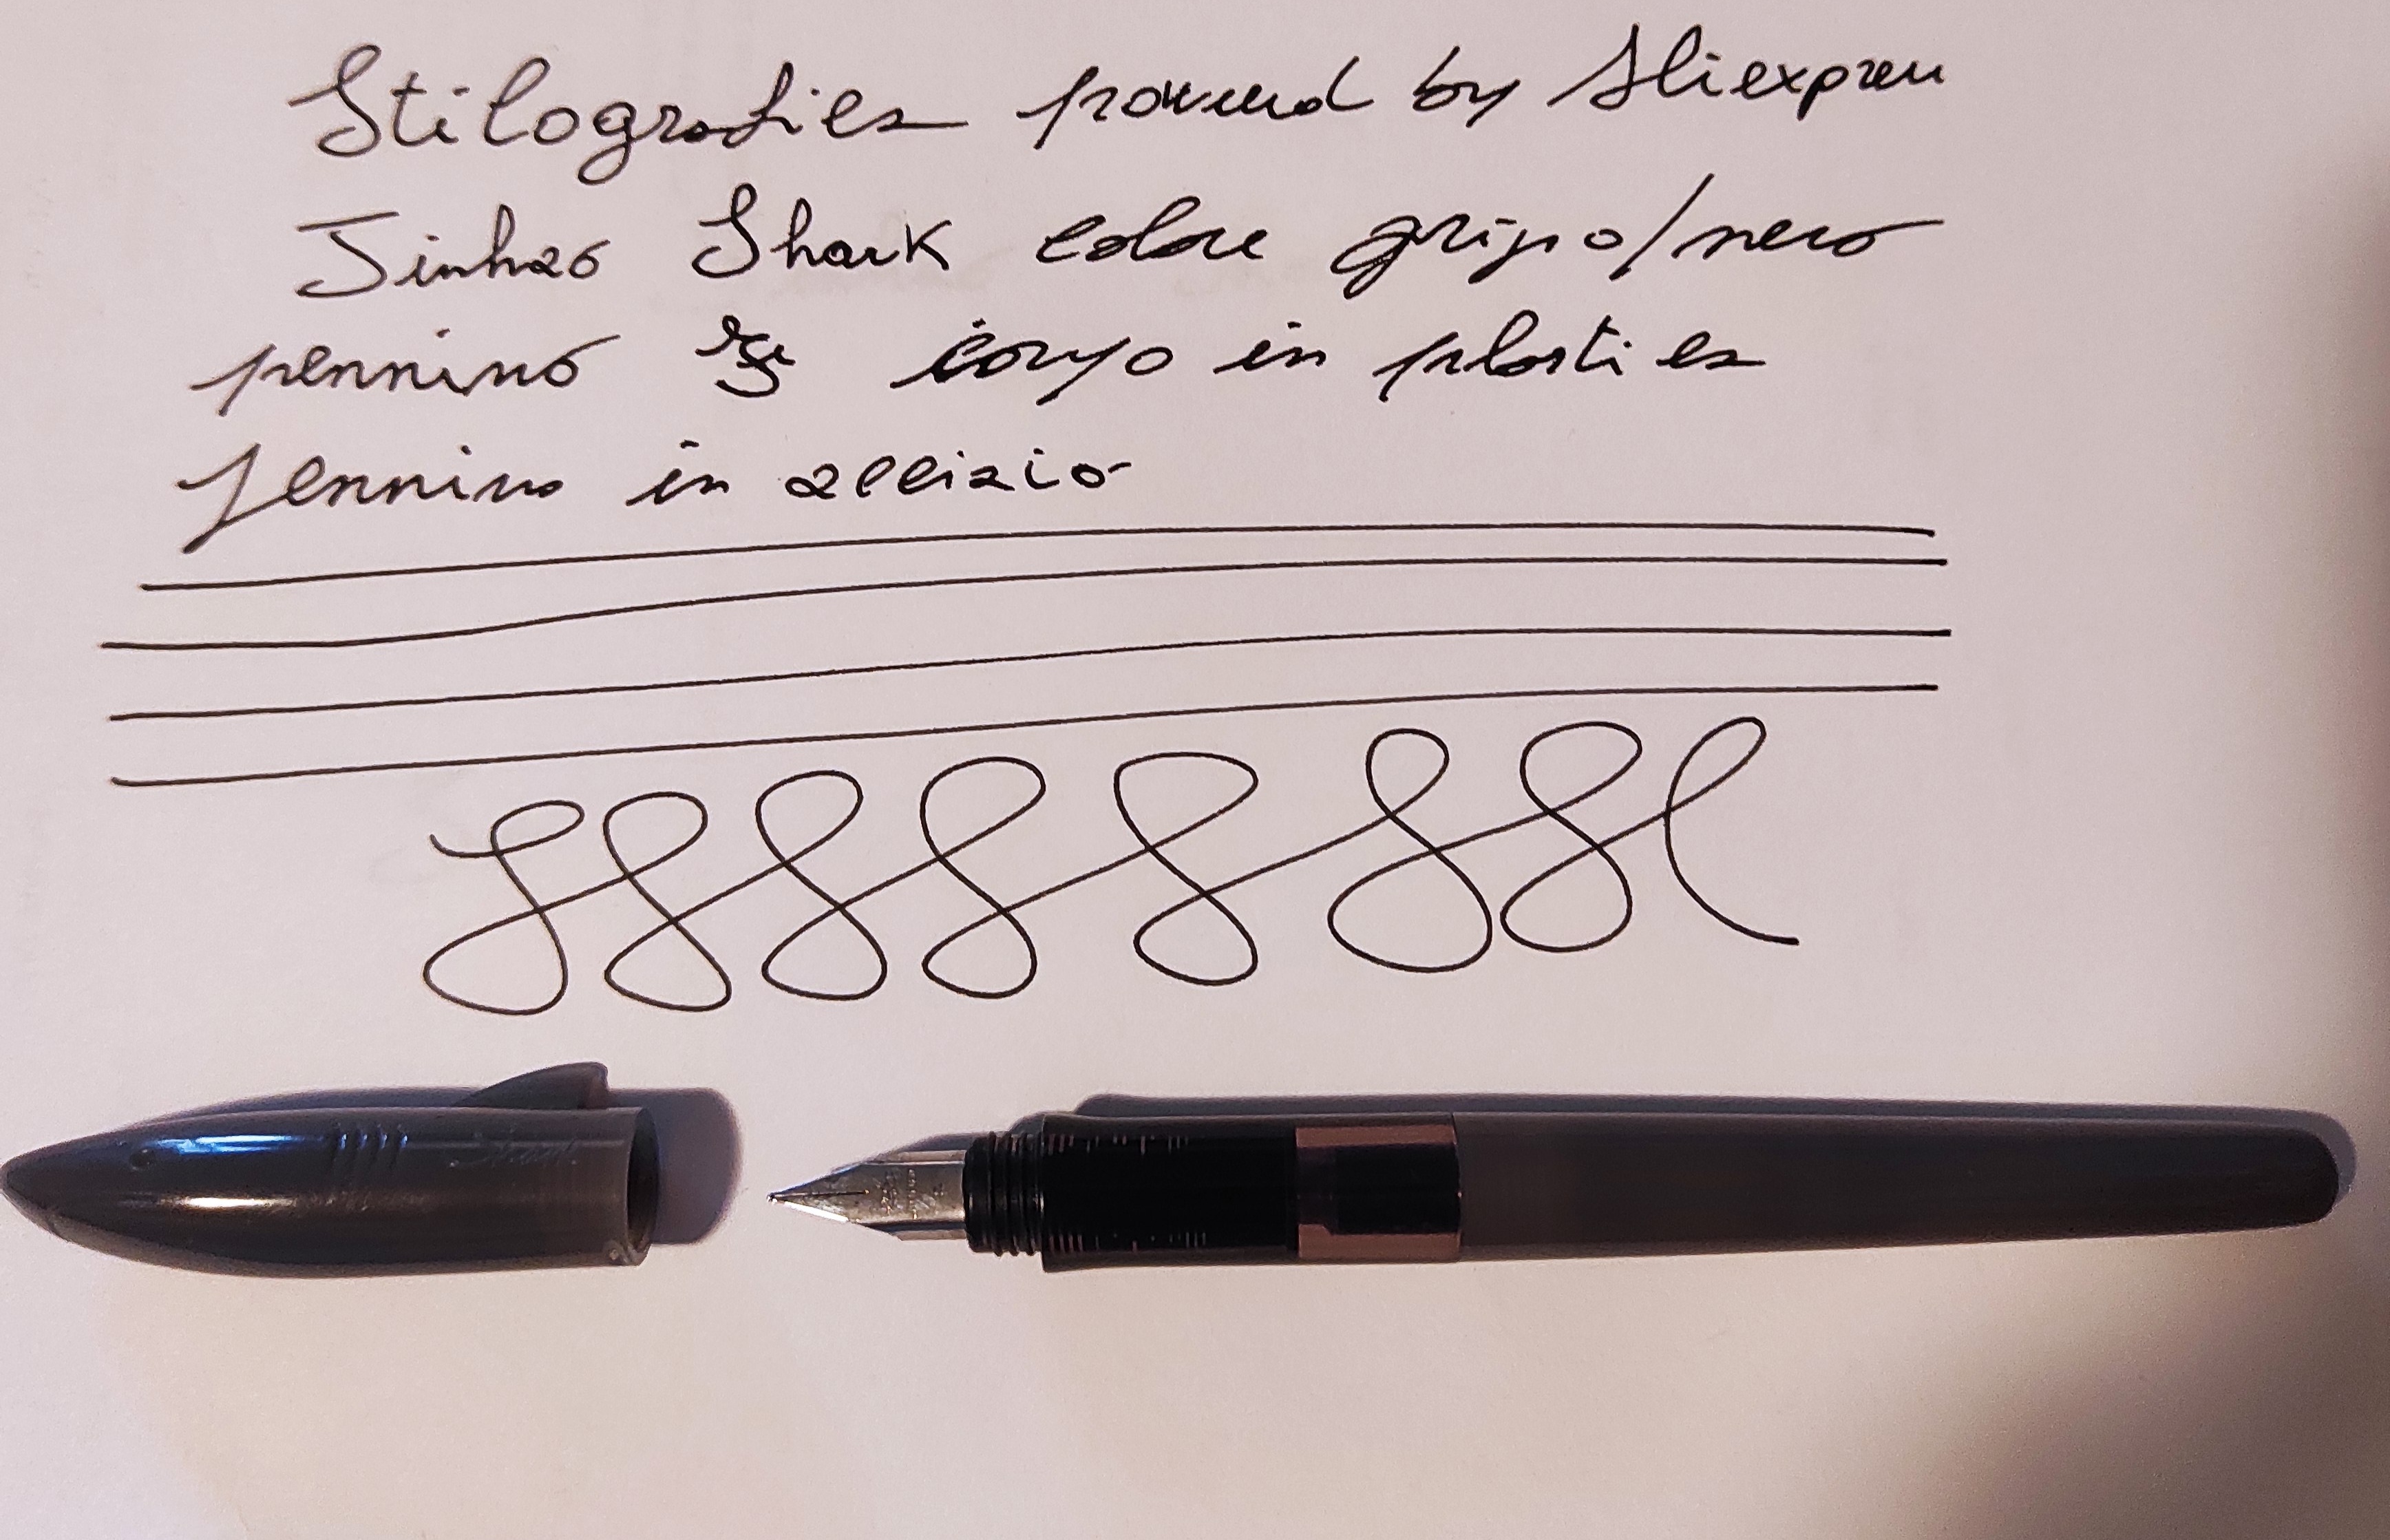 Stilografica powered by Aliexpress
Jinhao Shark colore grigio/nero
pennino corpo in plastica
Pennino in acciaio